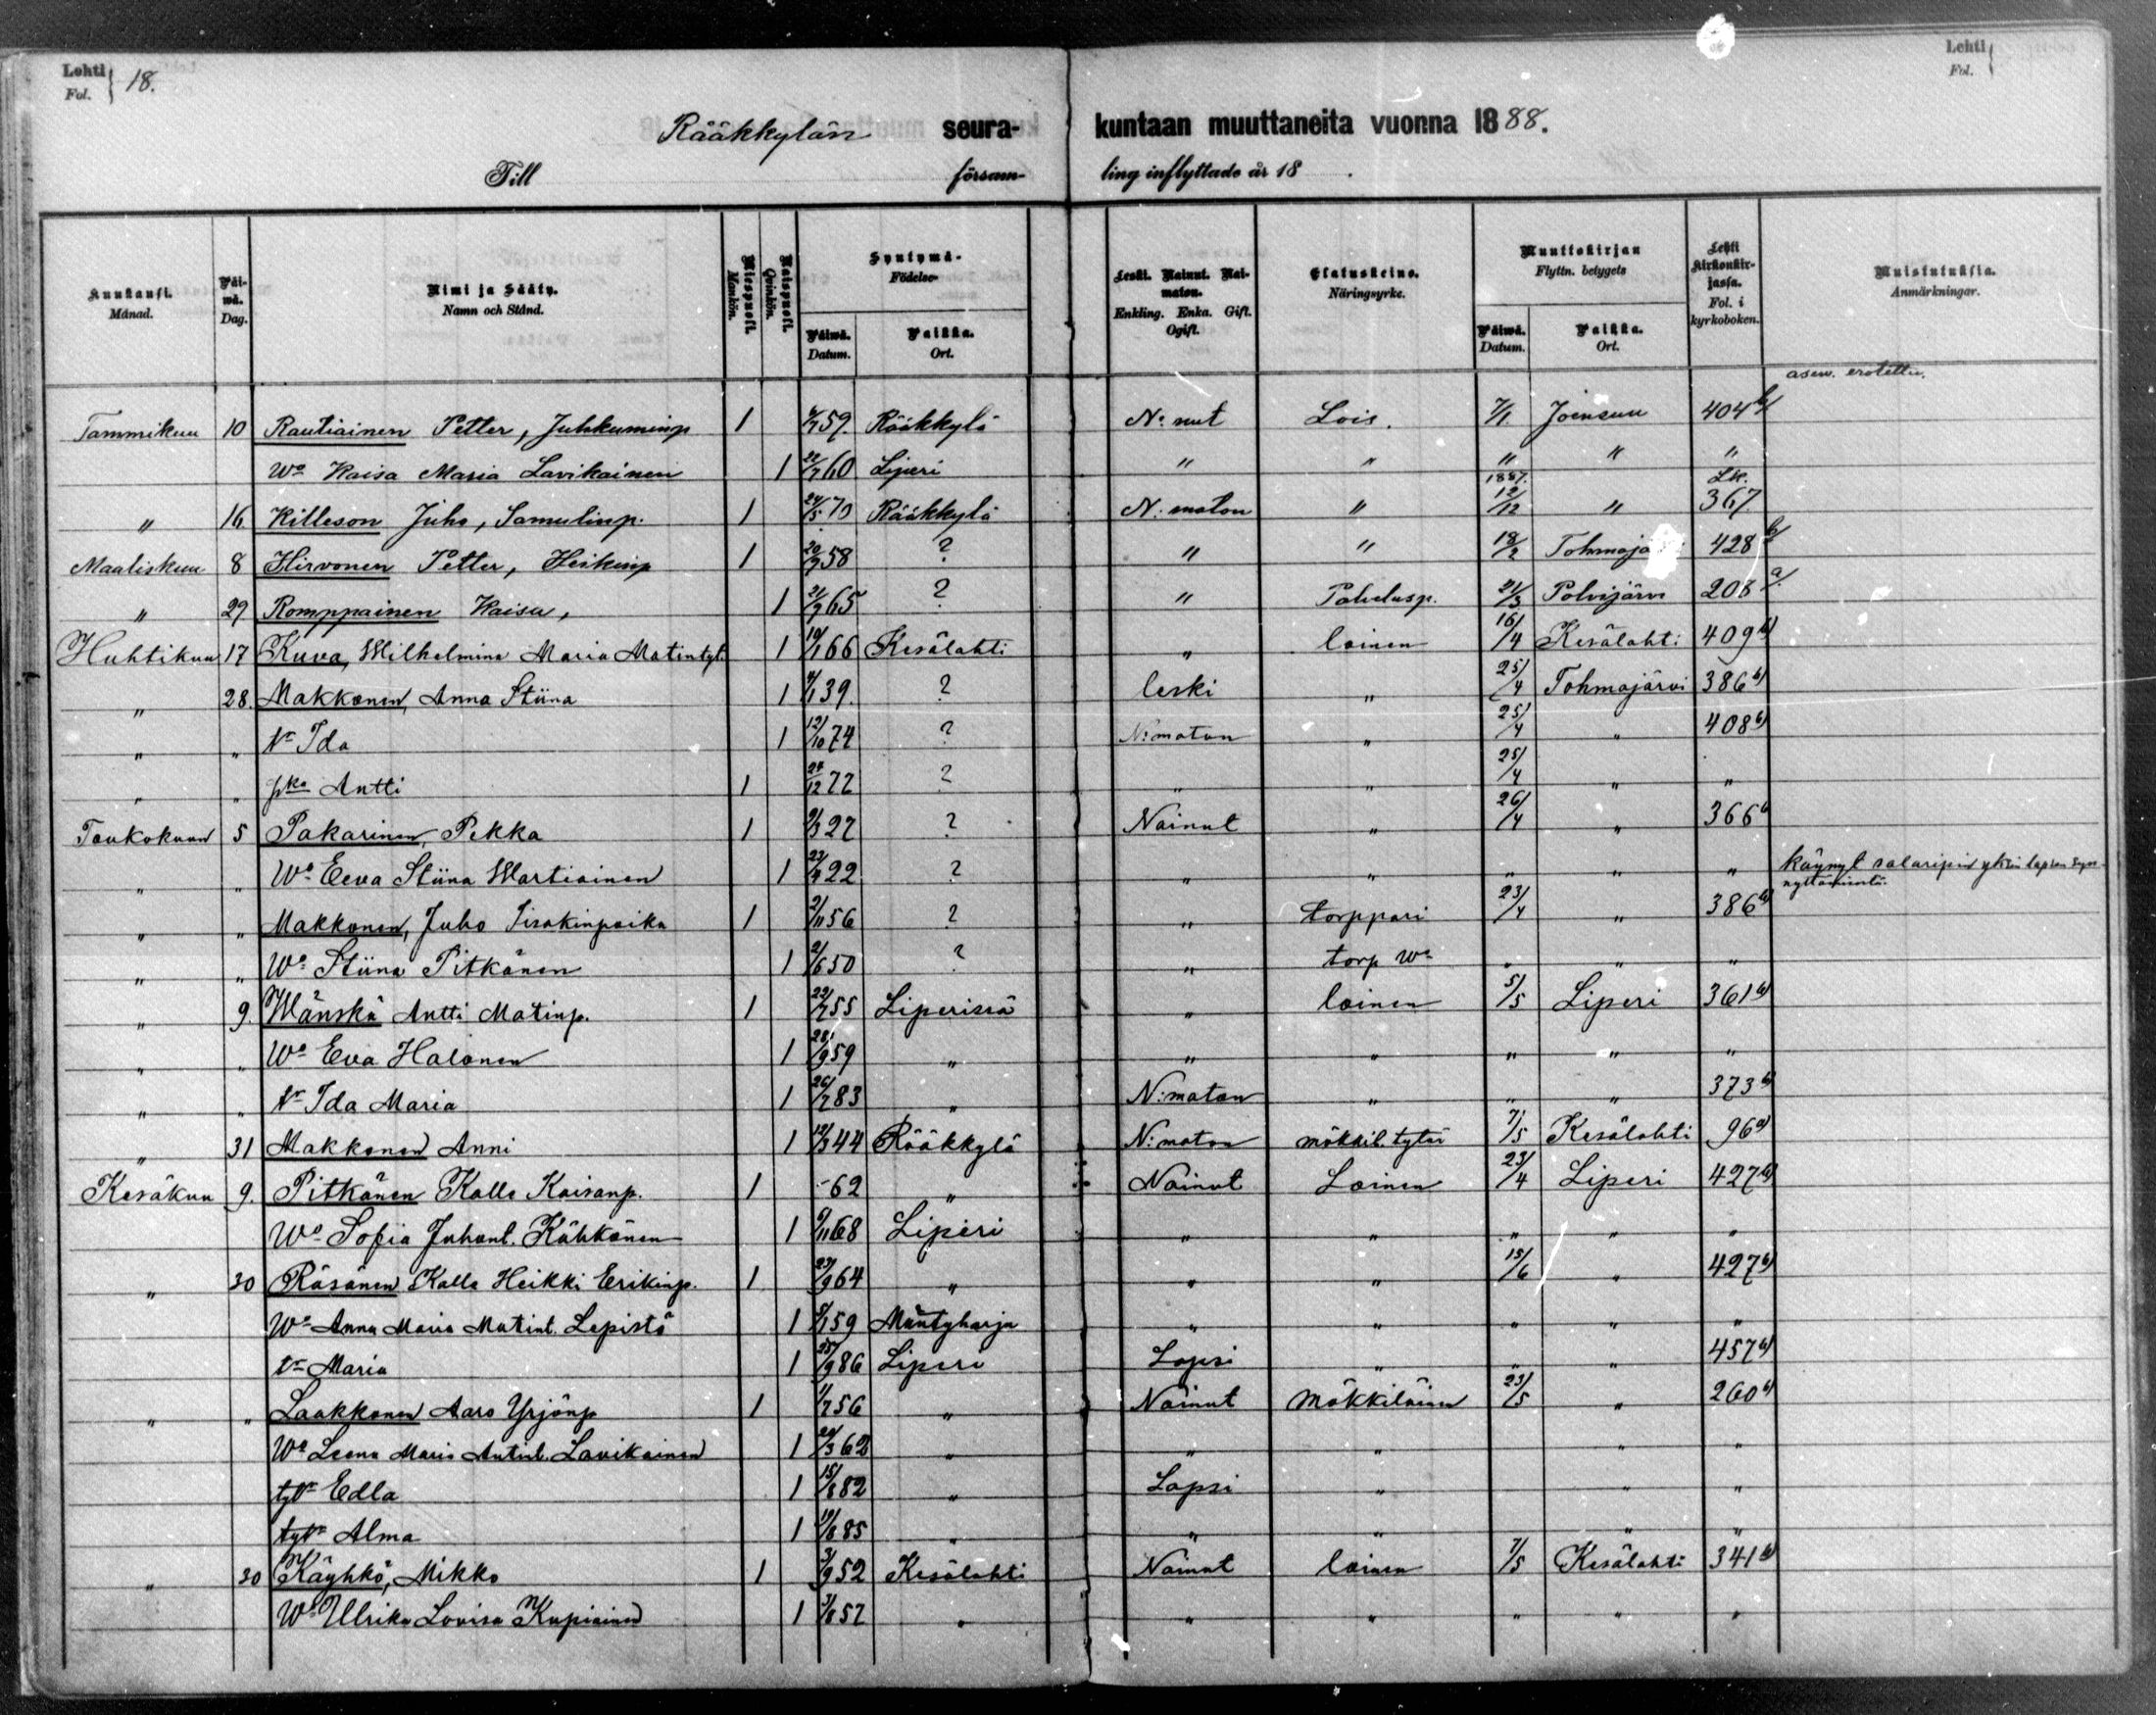 Lehti Fol. } 18.
Lehti Fol. }
Rääkkylän seura- kuntaan muuttaneita vuonna 1888.
Till församling inflyttade år 18 .
Kuukausi. Månad.
Päiwä. Dag.
Nimi ja Sääty. Namn och Stånd.
Miespuoli. Mankön.
Naispuoli. Qvinkön.
Syntymä- Födelse-
Päiwä. Datum.
Paikka. Ort.
Leski. Nainut. Naimaton. Enkling. Enka. Gift. Ogift.
Elatuskeino. Näringsyrke.
Muuttokirjan Flyttn. betygets
Päiwä. Datum.
Paikka. Ort.
Lehti kirkonkirjassa. Fol. i kyrkoboken.
Muistutuksia. Anmärkningar.
asew. erotettu.
Tammikuu 10 Rautiainen Petter, Juhkuminp 1 59. Rääkkylä N: nut Lois. 7/1. Joensuu 404 b/
Wo Kaisa Maria Lavikainen 1 60 Liperi " " " " "
" 16 Killeson Juho, Samulinp. 1 24/5 70 Rääkkylä N: maton " 1887. 12/12 " Lk. 367
Maaliskuu 8 Hirvonen Petter, Heikinp 1 20/9 58 ? " " 18/2 Tohmajä 428 b/
" 29 Romppainen Kaisa, 1 65 ? " Palvelusp. 21/3 Polvijärvi 208 a/
Huhtikuu 17 Kuva, Wilhelmina Maria Matintyt. 1 10/1 66 Kesälahti " loinen 16/4 Kesälahti 409 b)
" 28. Makkonen, Anna Stiina 1 39. ? leski " 25/4 Tohmajärvi 386 b)
" " tr Ida 1 12/10 74 ? N:maton " 25/4 " 408 b)
" " pka Antti 1 24/12 72 ? " " 25/4 " "
Toukokuun 5 Pakarinen, Pekka 1 27 ? Nainut " 26/4 " 366
" " Wo Eeva Stiina Wartiainen 1 22 ? " " " " " käynyt salaripin yhden lapsen synnyttämisestä.
" " Makkonen, Juho Iisakinpoika 1 2/11 56 ? " torppari 23/4 " 386 b)
" " Wo Stiina Pitkänen 1 2/6 50 ? " torp wo " " "
" 9. Wänskä Antti Matinp. 1 22/7 55 Liperissä " loinen 5/5 Liperi 361 b)
" " Wo Eva Halonen 1 28/9 59 " " " " " "
" " tr Ida Maria 1 26/7 83 " N:maton " " " 373 b)
" 31 Makkonen Anni 1 12/3 44 Rääkkylä N:maton mökkil. tytär 7/5 Kesälahti 96 a)
Kesäkuu 9. Pitkänen Kalle Kaisanp. 1 -62 " Nainut Loinen 23/4 Liperi 427 b)
Wo Sofia Juhont. Kähkönen 1 68 Liperi " " " " "
" 30 Räsänen Kalle Heikki Erikinp. 1 23/9 64 " " " 15/6 " 427 b)
Wo Anna Maria Matint. Lepistö 1 59 Mäntyharju " " " " "
tr Maria 1 25/9 86 Liperi Lapsi " " " 457 b)
" " Laakkonen Aaro Yrjönp 1 1/7 56 " Nainut Mökkiläinen 23/5 " 260 b)
Wo Leena Maria Antint. Lavikainen 1 24/3 62 " " " " "
tytr Edla 1 15/8 82 " Lapsi " " "
tytr Alma 1 85 " " " " "
" 30 Käyhkö, Mikko 1 3/9 52 Kesälahti Nainut loinen 7/5 Kesälahti 341 b)
Wo Ulrika Lovisa Kupiainen 1 57 " " " " " "